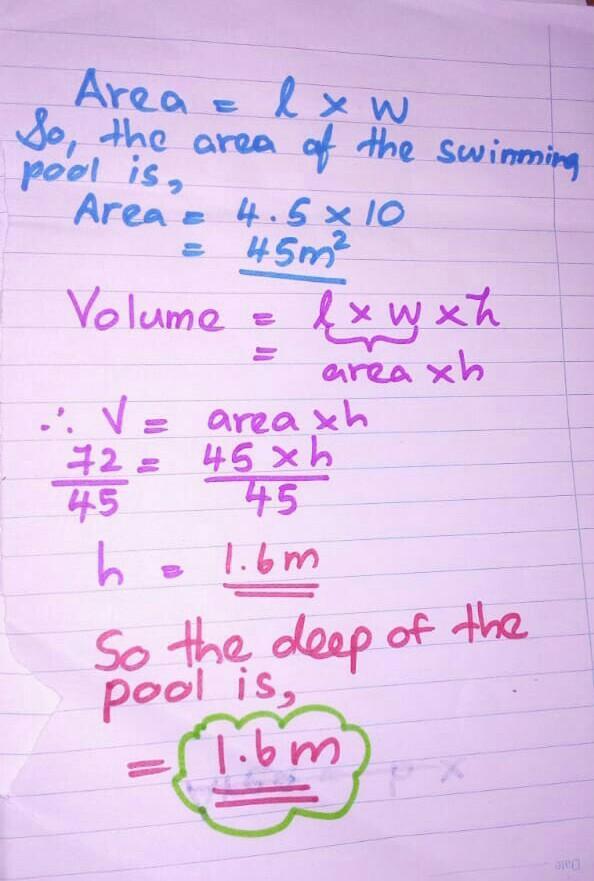 Area = l × w
So, the area of the swimming
pool is,
Area = 4.5 × 10
= 45m²
Volume = l × w × h
= area × h
∴ V = area × h
72/45 = 45 × h/45
h = 1.6m
So the deep of the
pool is,
= 1.6m
Date